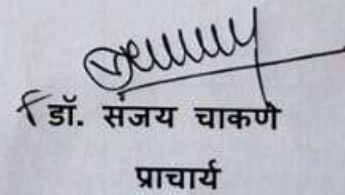 डॉ. संजय चाकणे
प्राचार्य